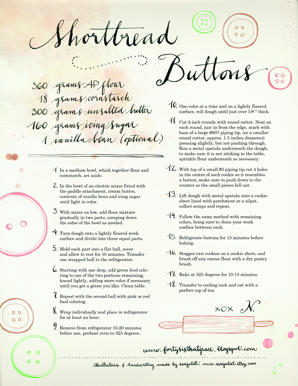 Shortbread
Buttons
360 grams AP flour
18 grams cornstarch
300 grams unsalted butter
160 grams icing sugar
1 vanilla bean (optional)
1. In a medium bowl, whisk together flour and
cornstarch, set aside.
2. In the bowl of an electric mixer fitted with
the paddle attachment, cream butter,
contents of vanilla bean and icing sugar
until light in color.
3. With mixer on low, add flour mixture
gradually in two parts, scraping down
sides of the bowl as needed.
4. Turn dough onto a lightly floured work
surface and divide into three equal parts.
5. Mold each part into a flat ball, cover
and allow to rest for 10 minutes. Transfer
one wrapped ball to the refrigerator.
6. Starting with one drop, add green food col-
oring to one of the two portions remaining,
knead lightly, adding more color if necessary
until you get a green you like. Create table.
7. Repeat with the second ball with pink or red
food coloring.
8. Wrap individually and place in refrigerator
for at least an hour.
9. Remove from refrigerator 10-20 minutes
before use, preheat oven to 325 degrees.
10. One color at a time and on a lightly floured
surface, roll dough until just over 1/8 " thick.
11. Cut 2 inch rounds with round cutter. Next on
each round, just in from the edge, mark with
base of a large #807 piping tip, (or a smaller
round cutter, approx. 1.5 inches diameter)
pressing slightly, but not pushing through.
Run a metal spatula underneath the dough
to make sure it is not sticking to the table,
sprinkle flour underneath as necessary.
12. With top of a small #3 piping tip cut 4 holes
in the centre of each cookie so it resembles
a button, make sure to push down to the
counter so the small pieces fall out.
13. Lift dough with metal spatula onto a cookie
sheet lined with parchment or a silpat,
collect scraps and repeat.
14. Follow the same method with remaining
colors, being sure to clean your work
surface between each.
15. Refrigerate buttons for 15 minutes before
baking.
16. Stagger raw cookies on a cookie sheet, and
brush off any excess flour with a dry pastry
brush.
17. Bake at 325 degrees for 10-13 minutes.
18. Transfer to cooling rack and eat with a
perfect cup of tea.
xox N.
www.fortysixthatgrace.blogspot.com
illustrations & handwriting made by